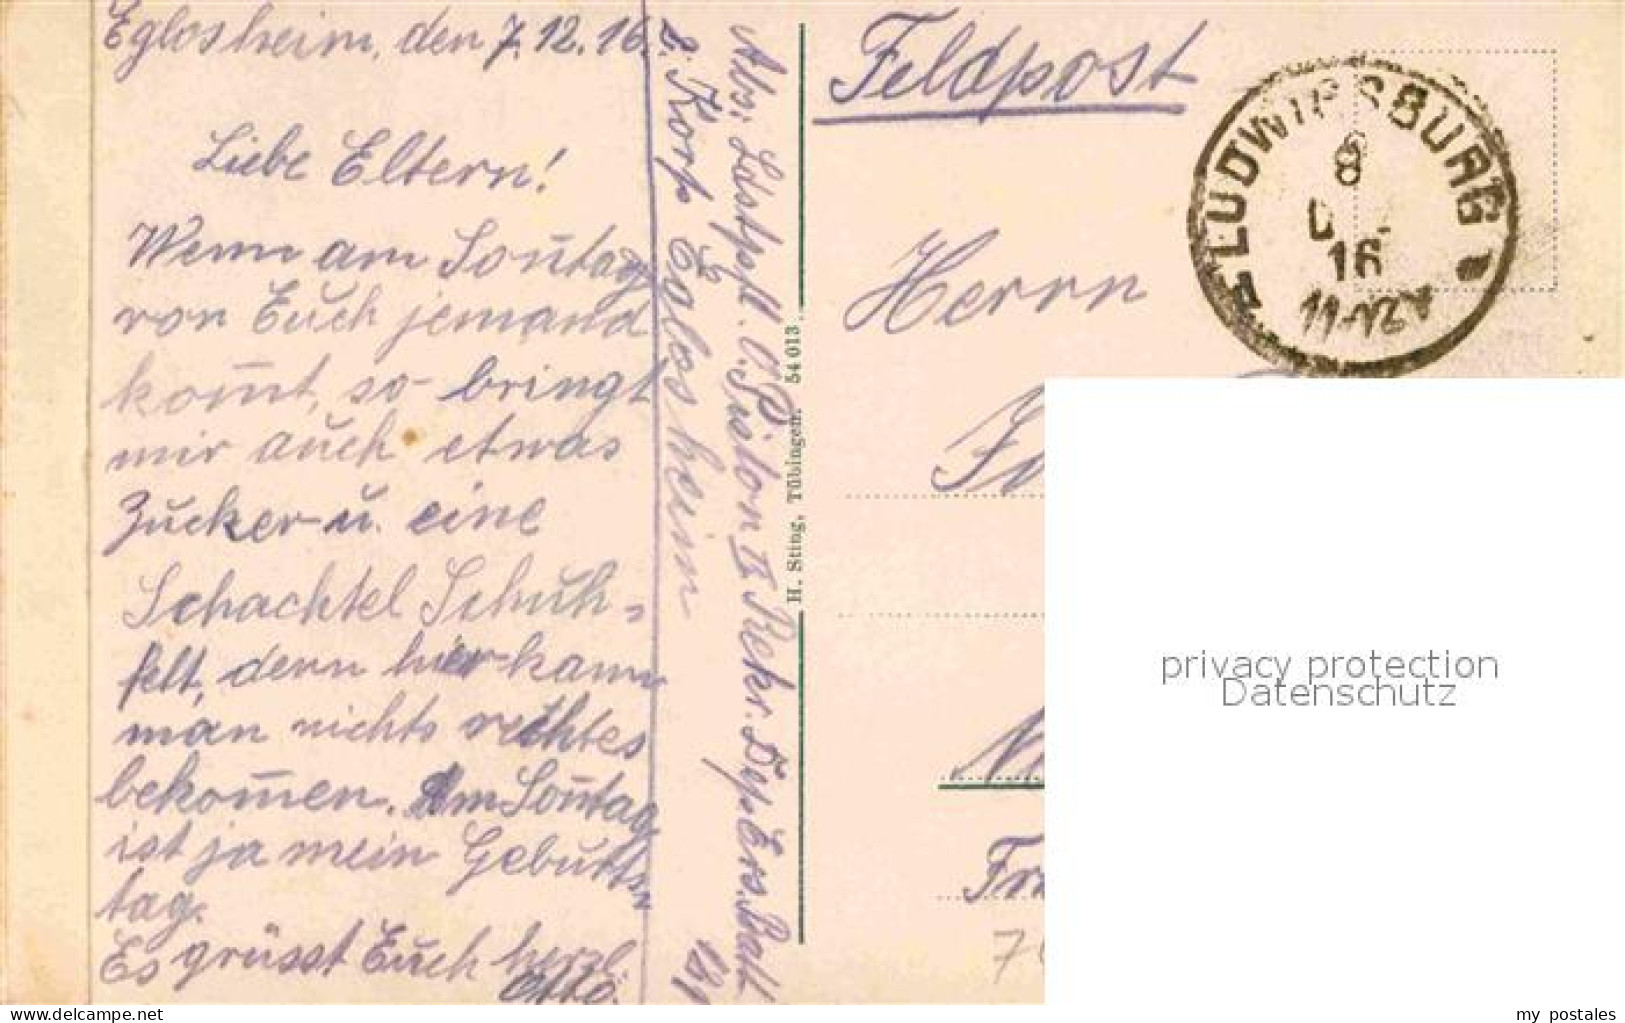 Eglosheim, den 7.12.16.
Liebe Eltern!
Wenn am Son̄tag
von Euch jemand
kom̄t, so bringt
mir auch etwas
Zucker u. eine
Schachtel Schuh=
fett, denn hier kann
man nichts rechtes
bekom̄en. Am Son̄tag
ist ja mein Geburts
tag.
Es grüsst Euch herzl.
Otto.
Abs: Ldstpfl. O. Pistor II Rekr. Dep Ers. Batl
2. Kork Eglosheim
H. Sting, Tübingen. 54 013
Feldpost
LUDWIGSBURG
8
16
11-12 V
Herrn
privacy protection
Datenschutz
my_postales